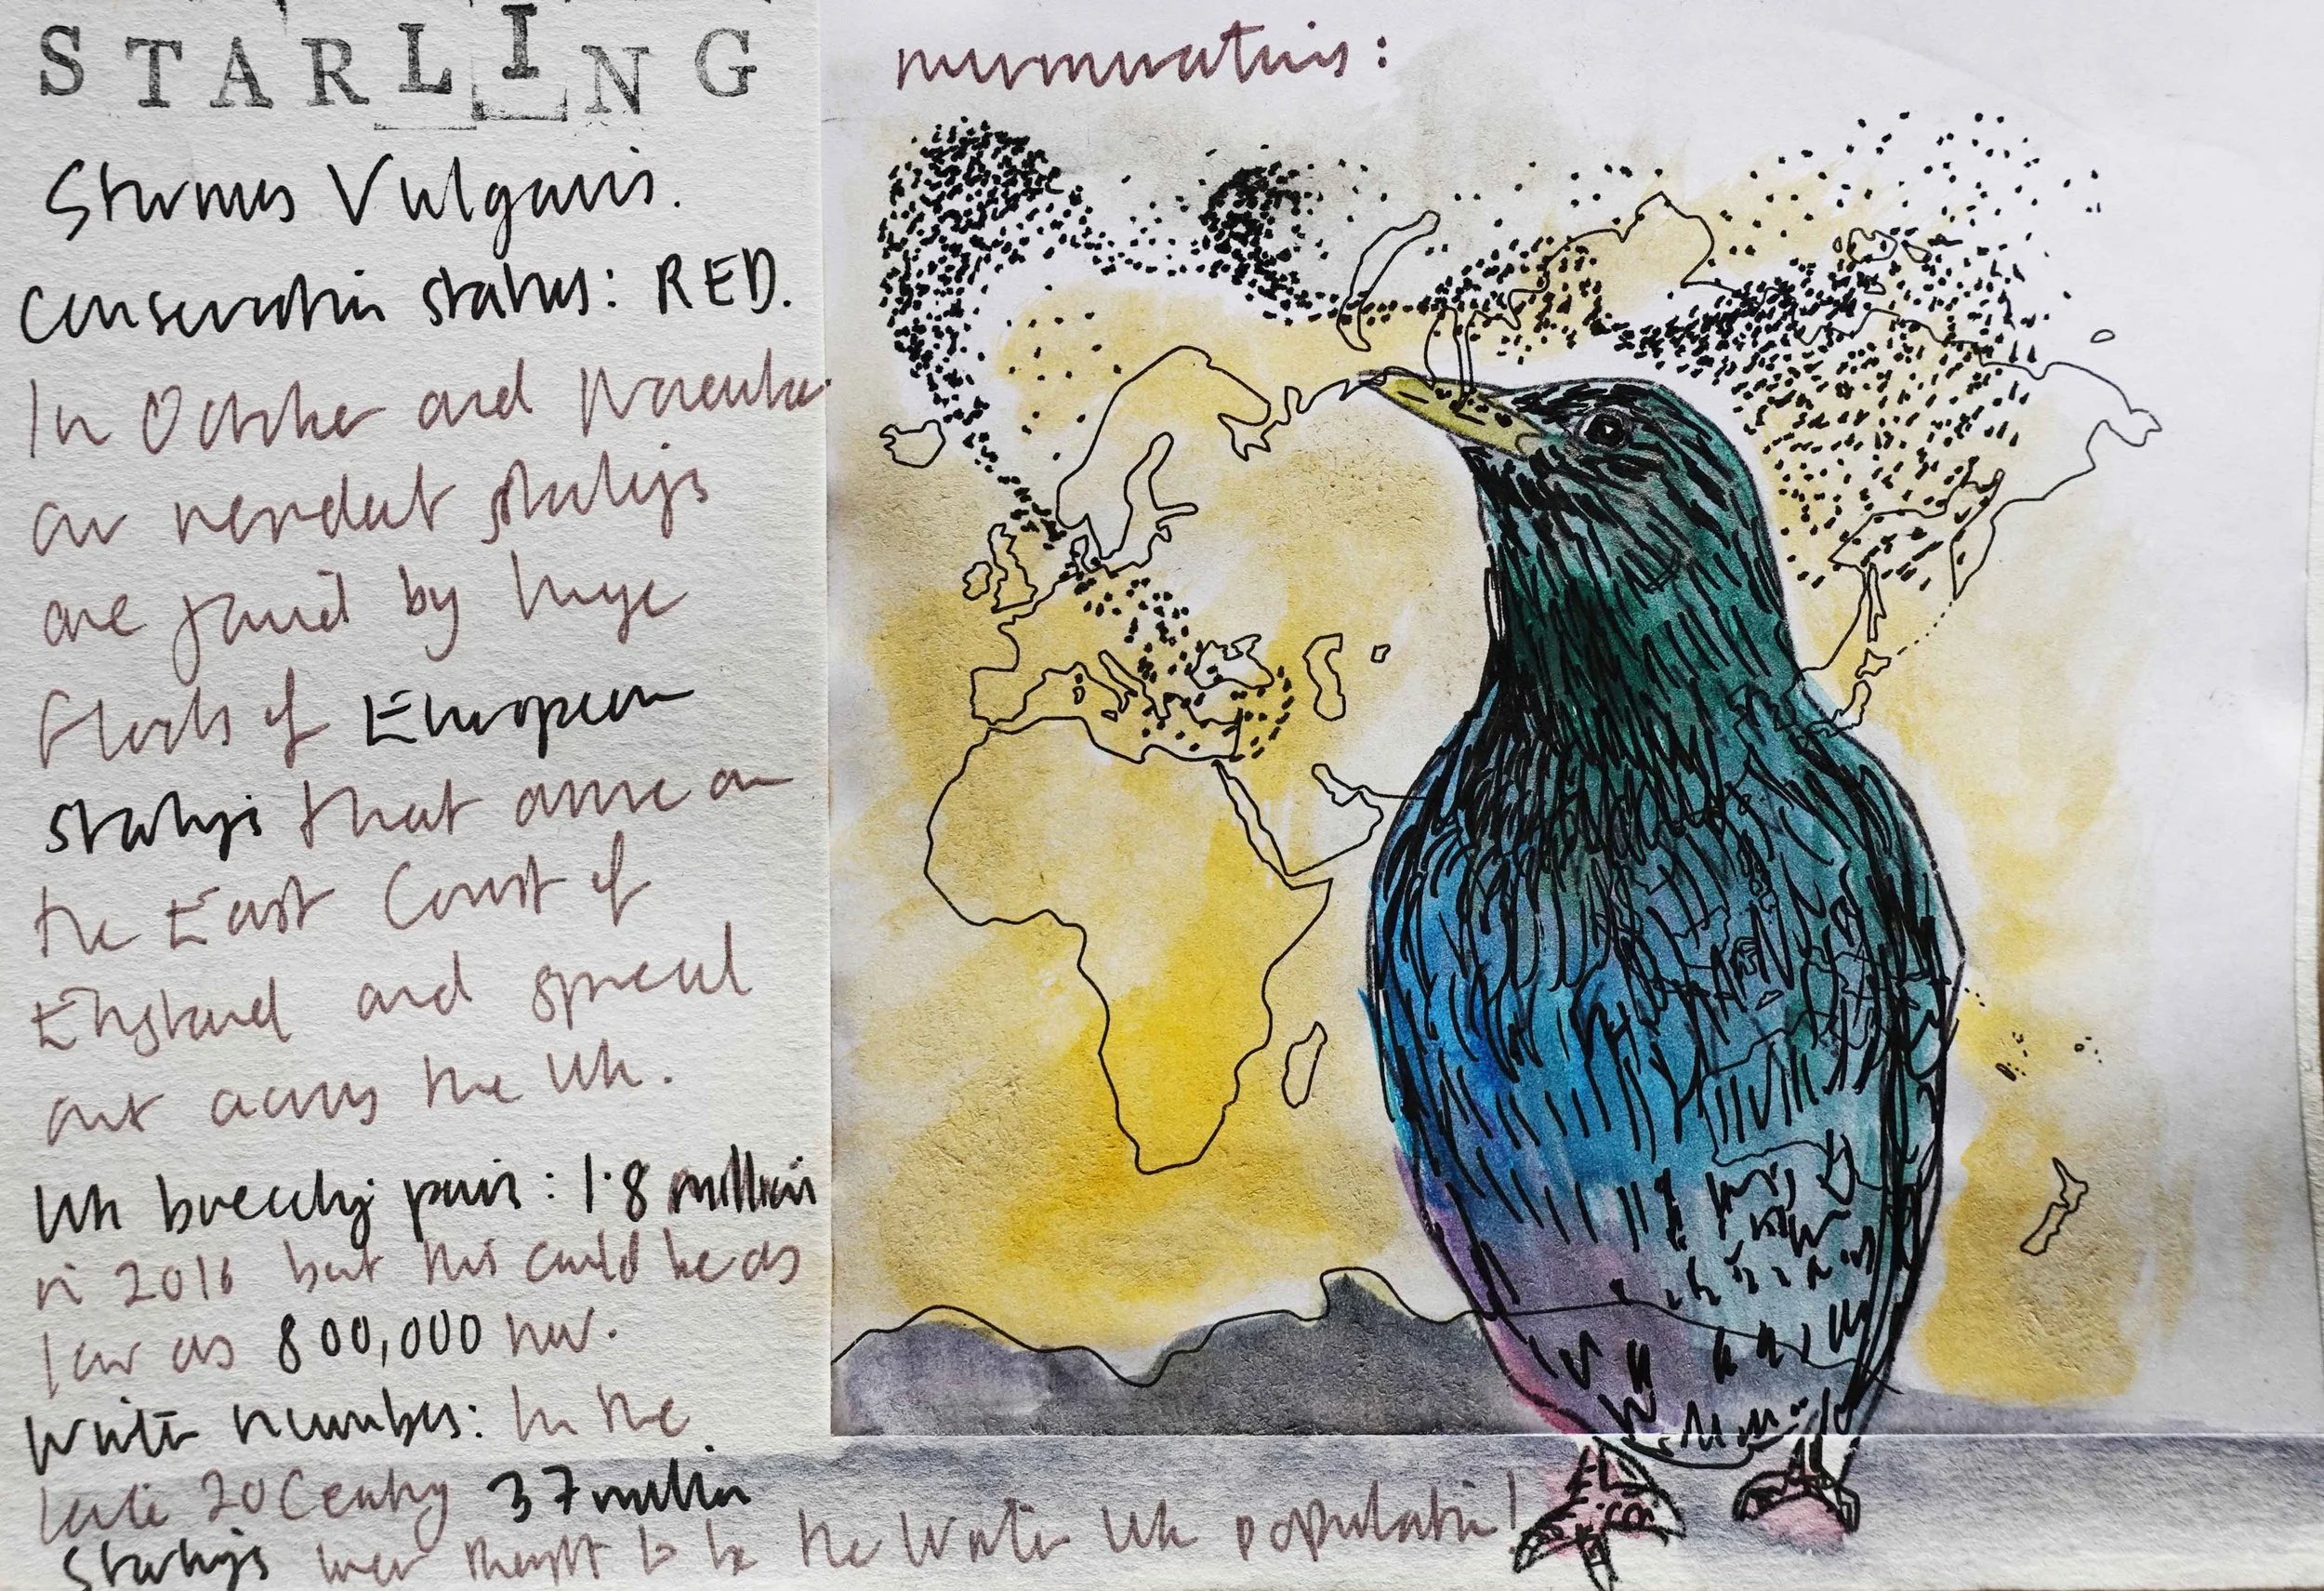 STARLING
Sturnus Vulgaris.
Conservation status: RED.
In October and November
our resident starlings
are joined by huge
flocks of European
starlings that arrive on
the East Coast of
England and spread
out across the UK.
UK breeding pairs: 1.8 million
in 2016 but this could be as
low as 800,000 now.
Winter numbers: In the
late 20 Century 37 million
Starlings were thought to be the Winter UK population!
murmurations: